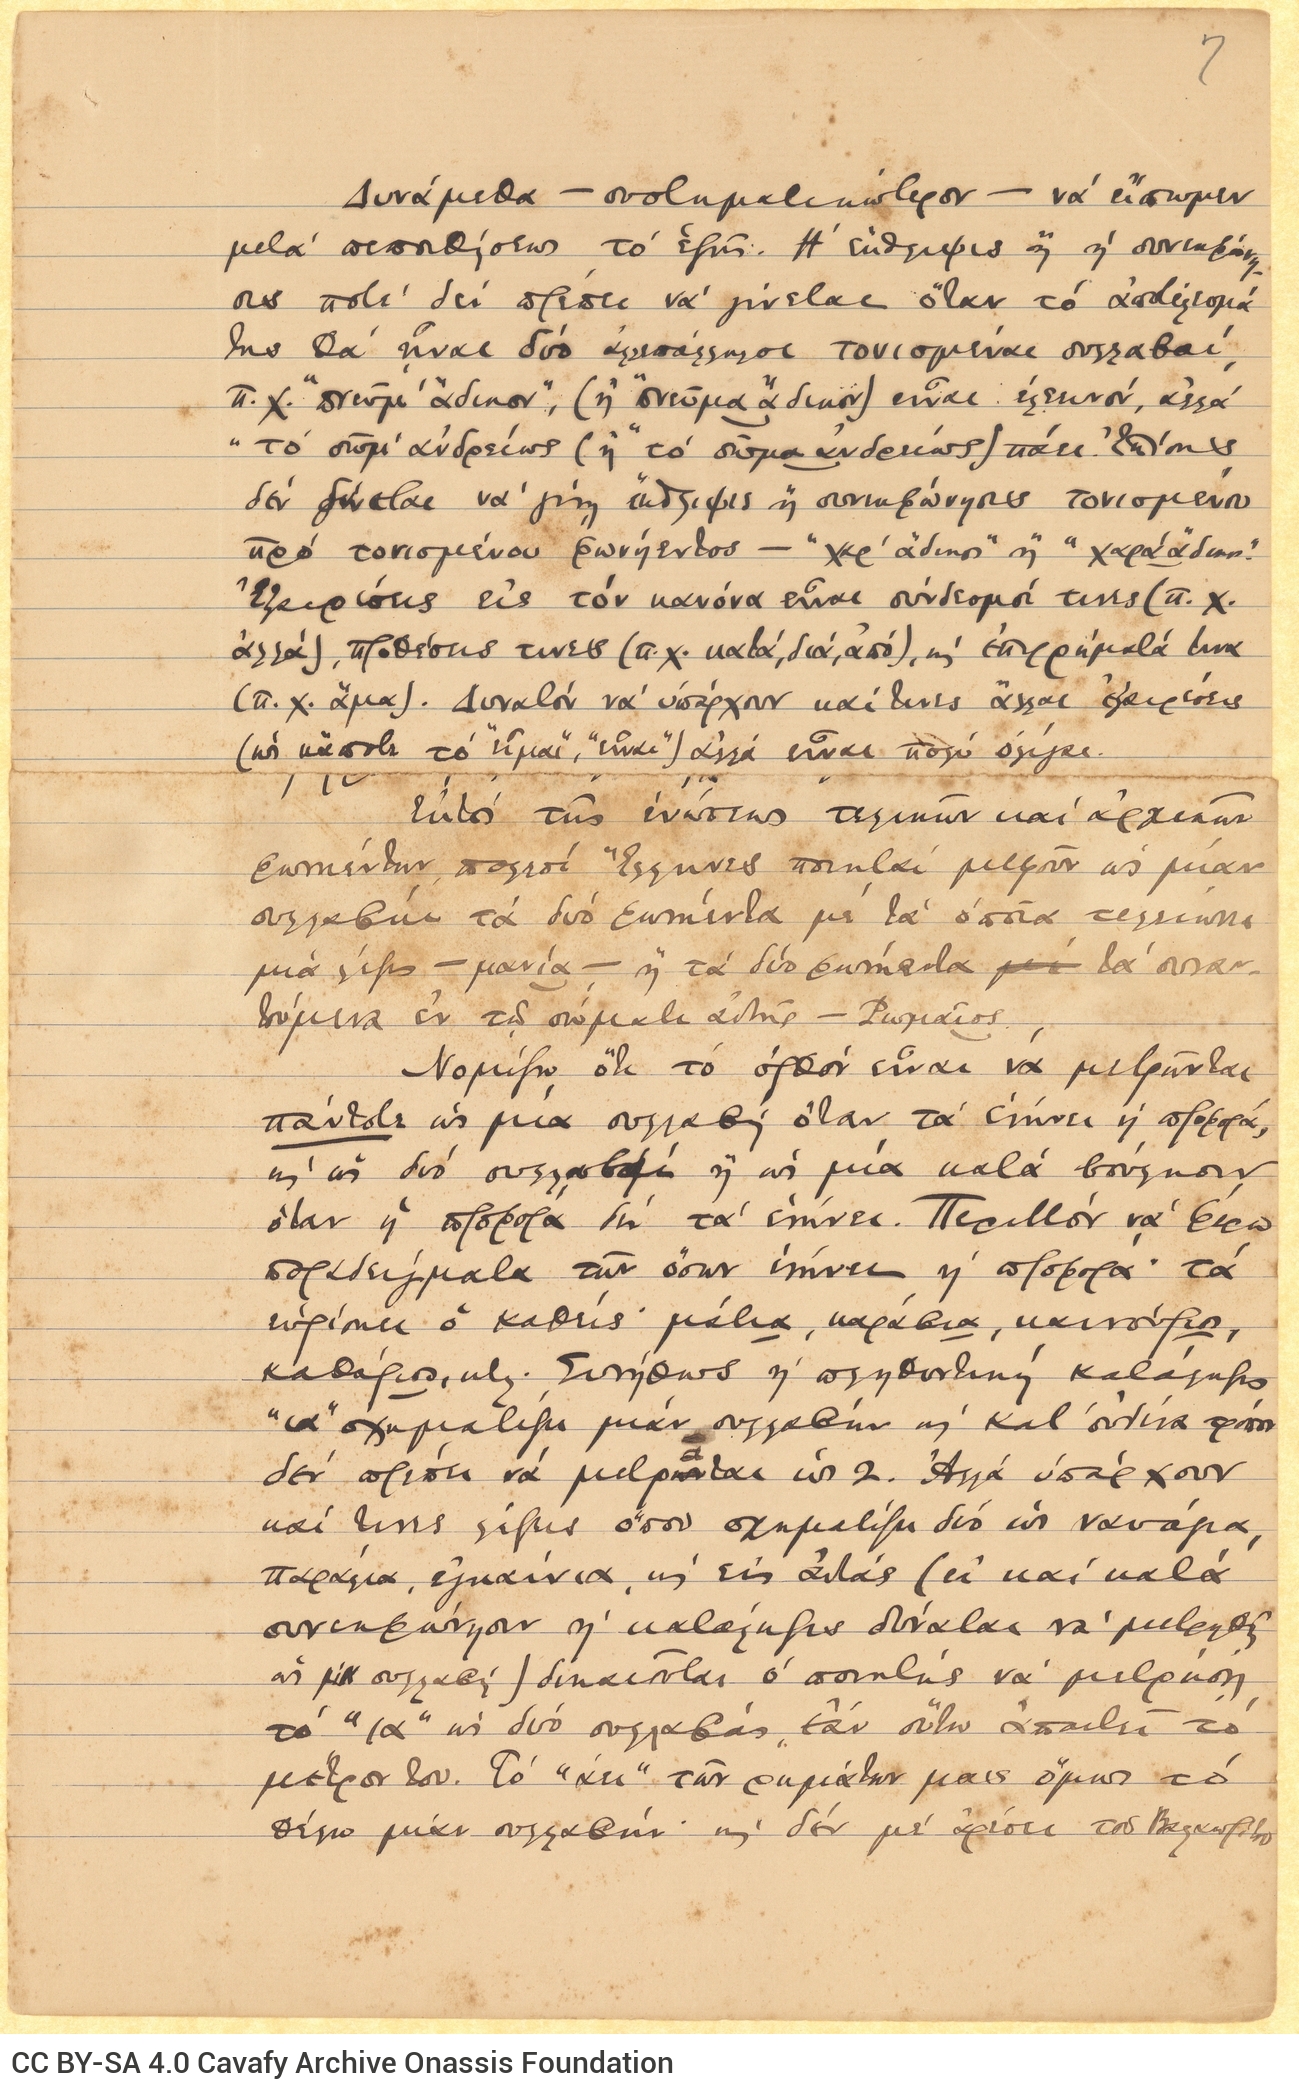 7
Δυνάμεθα — συστηματικώτερον — νά εἴπωμεν
μετά πεποιθήσεως τό ἑξῆς. Ἡ ἔκθλιψις ἤ ἡ συνεκφώνη-
σις ποτέ δέν πρέπει νά γίνεται ὅταν τό ἀποτέλεσμά
της θά ᾖναι δύο ἀλεπάλληλοι τονισμέναι συλλαβαί,
π.χ. "πνεῦμ' ἄδικον", (ἤ "πνεῦμα ἄδικον") εἶναι ἐλεεινόν, ἀλλά
"τό σῶμ' ἀνδρείως (ἤ "τό σῶμα ἀνδρείως) πάει. Ἐπίσης
δέν δύναται νά γίνῃ ἔκθλιψις ἤ συνεκφώνησις τονισμένου
πρό τονισμένου φωνήεντος — "χαρ' ἄδικη" ἤ "χαρά ἄδικη".
Ἐξαιρέσεις εἰς τόν κανόνα εἶναι σύνδεσμοί τινες (π.χ.
ἀλλά), προθέσεις τινές (π.χ. κατά, διά, ἀπό), κ' ἐπιρρήματά τινα
(π.χ. ἅμα). Δυνατόν νά ὑπάρχουν καί τινες ἄλλαι ἐξαιρέσεις
(ὡς κάποτε τό "εἶμαι", "εἶναι") ἀλλά εἶναι πολύ ὀλίγαι.
Ἐκτός τῆς ἑνώσεως τελικῶν καί ἀρχικῶν
φωνηέντων, πολλοί Ἕλληνες ποιηταί μετροῦν ὡς μίαν
συλλαβήν τά δύο φωνήεντα μέ τά ὁποῖα τελειώνει
μιά λέξις — μανία — ἤ τά δύο φωνήεντα μέ τά συναν-
τώμενα ἐν τῷ σώματι αὐτῆς — Ρωμαῖος.
Νομίζω ὅτι τό ὀρθόν εἶναι νά μετρῶνται
πάντοτε ὡς μία συλλαβή ὅταν τά ἑνώνει ἡ προφορά,
κ' ὡς δυό συλλαβαί ἤ ὡς μία κατά βούλησιν
ὅταν ἡ προφορά δέν τά ἑνώνει. Περιττόν νά φέρω
παραδείγματα τῶν ὅσων ἑνώνει ἡ προφορά· τά
εὑρίσκει ὁ καθείς· μάτια, καράβια, καινούριο,
καθάριο, κτλ. Συνήθως ἡ πληθυντική κατάληξις
"ια" σχηματίζει μιάν συλλαβήν κ' κατ' οὐδένα τρόπον
δέν πρέπει νά μετρᾶται ὡς 2. Ἀλλά ὑπάρχουν
καί τινες λέξεις ὅπου σχηματίζει δυό ὡς ναυάγια,
παράλια, ἐγκαίνια, κ' εἰς αὐτάς (εἰ καί κατά
συνεκφώνησιν ἡ κατάληξις δύναται νά μετρηθῇ
ὡς μία συλλαβή) δικαιοῦται ὁ ποιητής νά μετρήσῃ
τό "ια" ὡς δυό συλλαβάς, ἐάν οὕτω ἀπαιτεῖ τό
μέτρον του. Τό "άει" τῶν ρημάτων μας ὅμως τό
θέλω μίαν συλλαβήν· κ' δέν μέ ἀρέσει τοῦ Βαλαωρίτου
CC BY-SA 4.0 Cavafy Archive Onassis Foundation